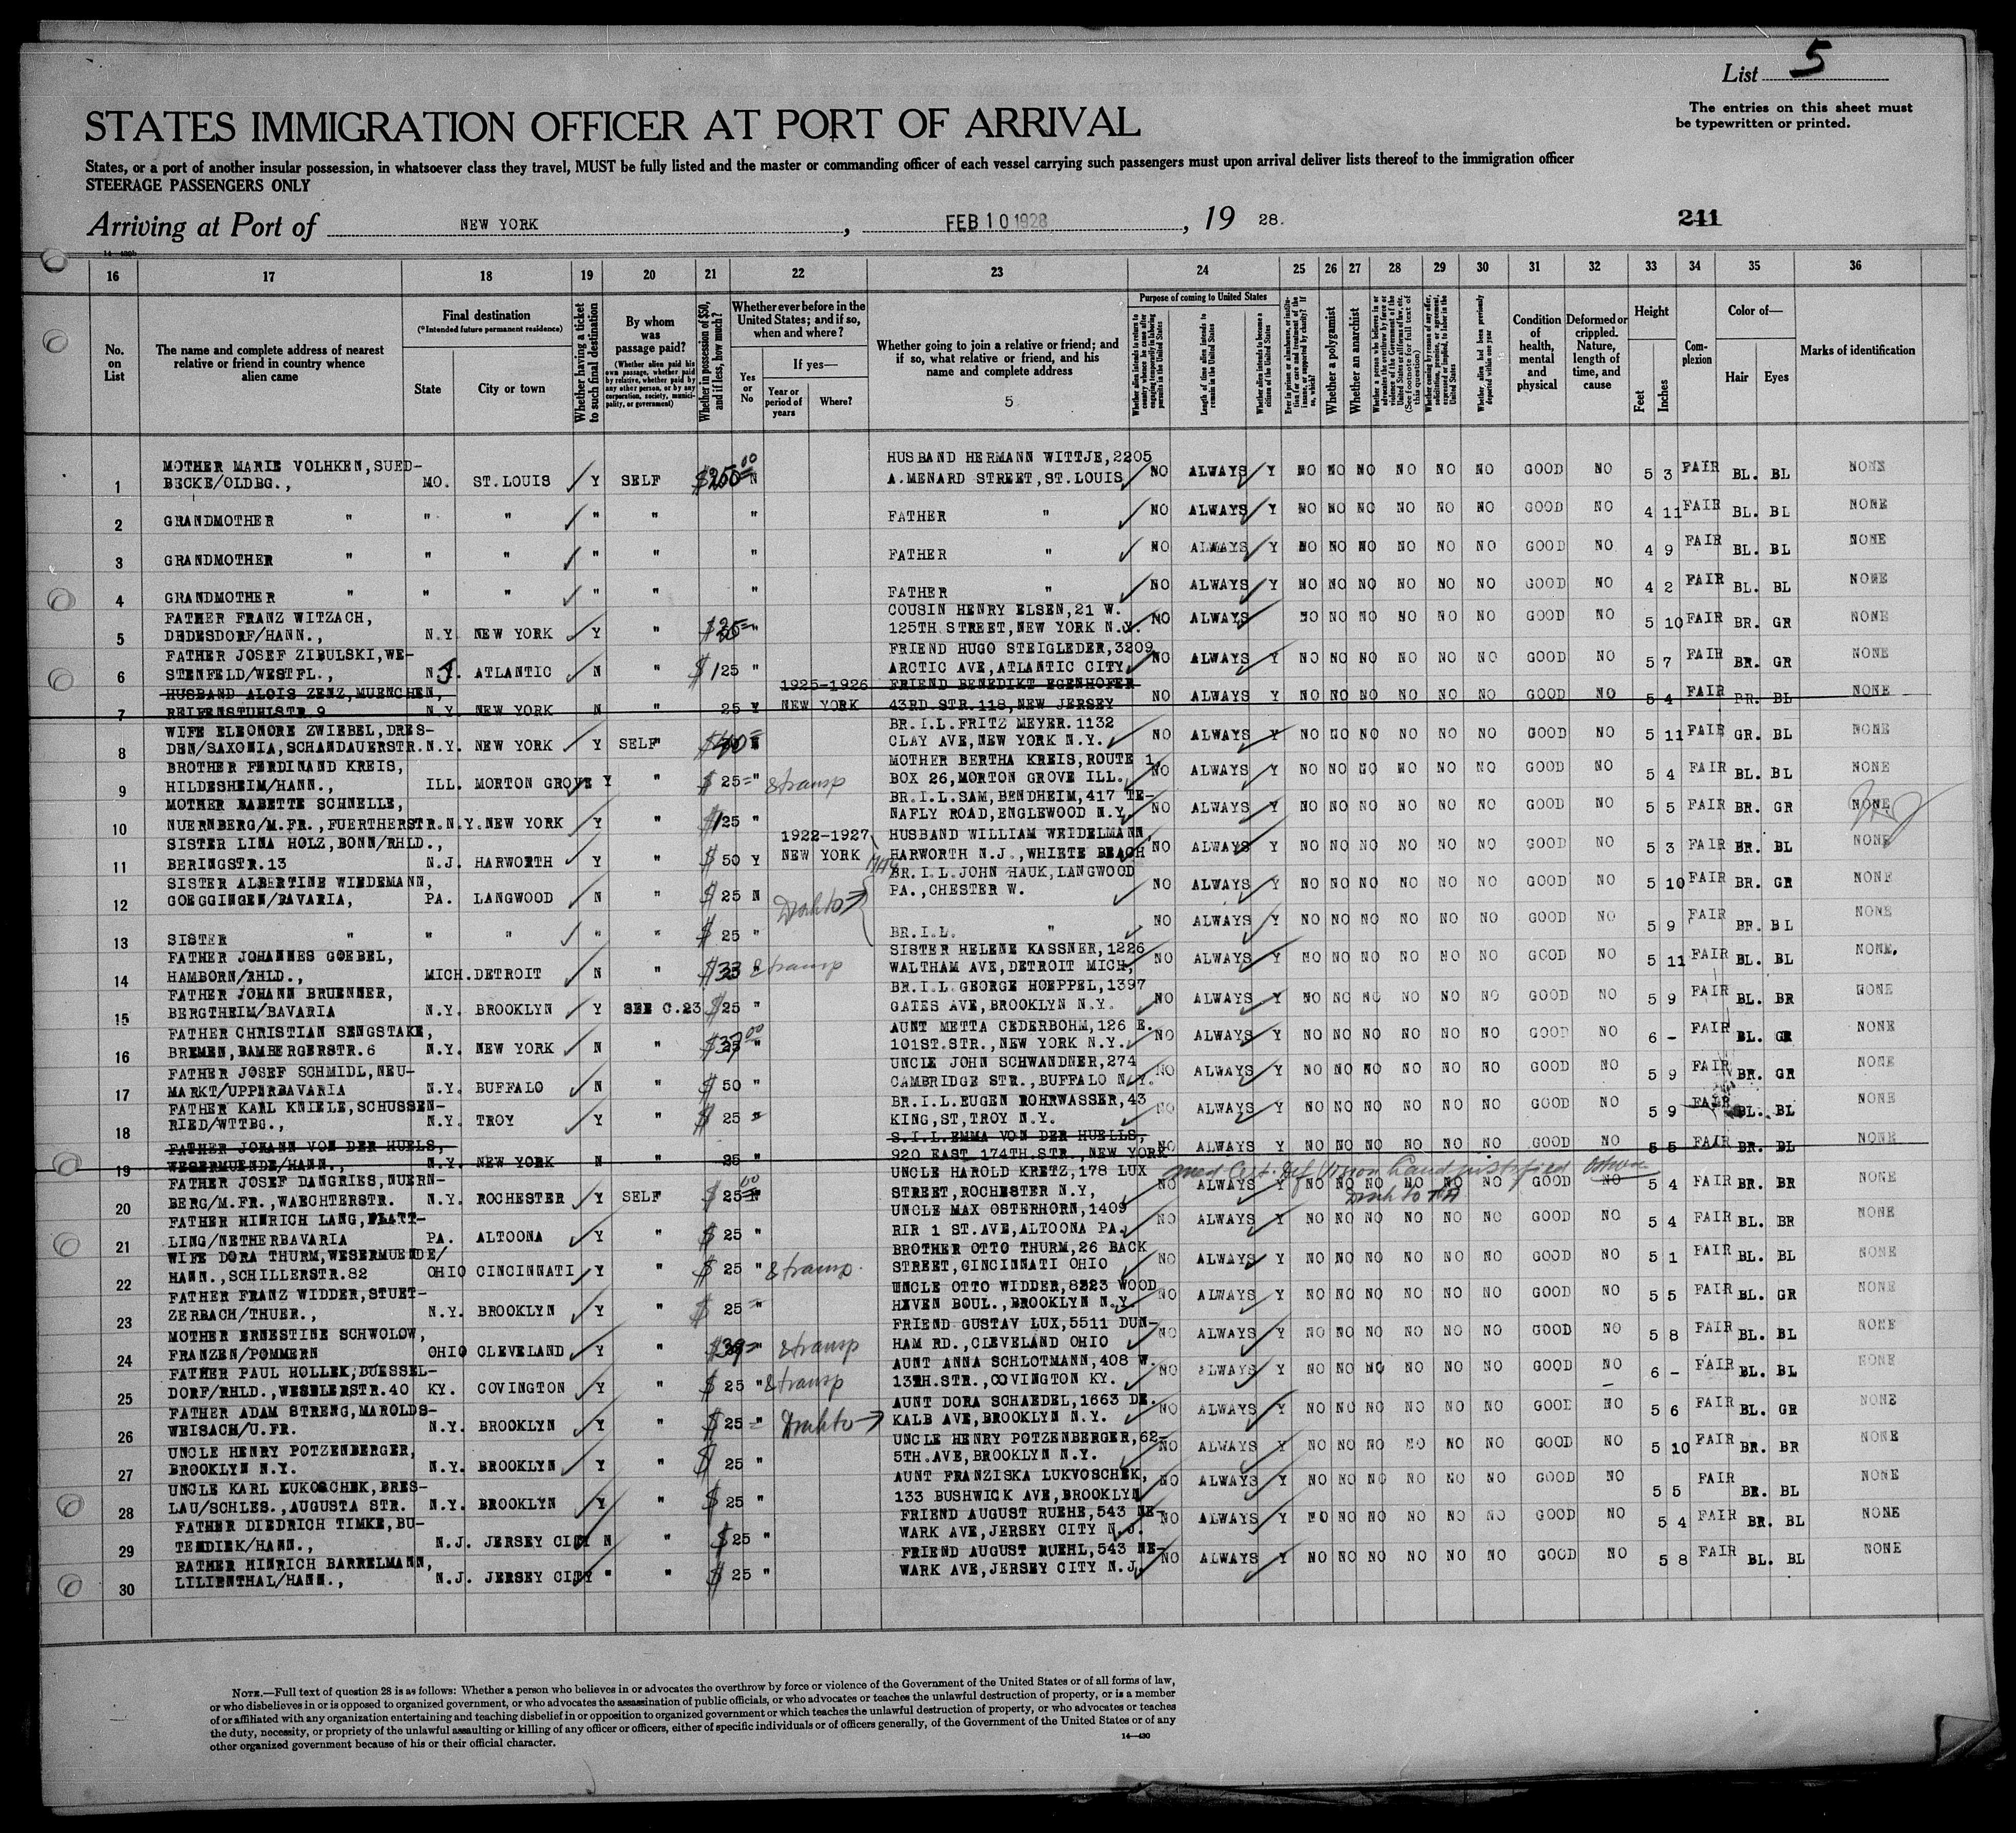 List 5
The entries on this sheet must
be typewritten or printed.
STATES IMMIGRATION OFFICER AT PORT OF ARRIVAL
States, or a port of another insular possession, in whatsoever class they travel, MUST be fully listed and the master or commanding officer of each vessel carrying such passengers must upon arrival deliver lists thereof to the immigration officer
STEERAGE PASSENGERS ONLY
Arriving at Port of NEW YORK, FEB 10 1928, 19 28.
241
16 17 18 19 20 21 22 23 24 25 26 27 28 29 30 31 32 33 34 35 36
No. on List
The name and complete address of nearest relative or friend in country whence alien came
Final destination
(*Intended future permanent residence)
State City or town
Whether having a ticket to such final destination
By whom was passage paid?
(Whether alien paid his own passage, whether paid by relative, whether paid by any other person, or by any corporation, society, municipality, or government)
Whether in possession of $50, and if less, how much?
Whether ever before in the United States; and if so, when and where?
Yes or No
If yes—
Year or period of years
Where?
Whether going to join a relative or friend; and if so, what relative or friend, and his name and complete address
5
Purpose of coming to United States
Length of time alien intends to remain in the United States
Whether alien intends to become a citizen of the United States
Whether a polygamist
Whether an anarchist
Whether alien had been previously deported within one year
Condition of health, mental and physical
Deformed or crippled. Nature, length of time, and cause
Height
Feet Inches
Complexion
Color of—
Hair Eyes
Marks of identification
1 MOTHER MARIE VOLHKEN, SUED-
BECKE/OLDBG., MO. ST.LOUIS Y SELF $250 00 N HUSBAND HERMANN WITTJE, 2205
A.MENARD STREET, ST.LOUIS NO ALWAYS Y NO NO NO NO NO NO GOOD NO 5 3 FAIR BL. BL NONE
2 GRANDMOTHER " " " " " " FATHER " NO ALWAYS Y NO NO NO NO NO NO GOOD NO 4 11 FAIR BL. BL NONE
3 GRANDMOTHER " " " " " " FATHER " NO ALWAYS Y NO NO NO NO NO NO GOOD NO 4 9 FAIR BL. BL NONE
4 GRANDMOTHER " " " " " " FATHER " NO ALWAYS Y NO NO NO NO NO NO GOOD NO 4 2 FAIR BL. BL NONE
5 FATHER FRANZ WITZACH,
DEDESDORF/HANN., N.Y. NEW YORK Y " " COUSIN HENRY ELSEN, 21 W.
125TH STREET, NEW YORK N.Y. NO ALWAYS NO NO NO NO NO NO GOOD NO 5 10 FAIR BR. GR NONE
6 FATHER JOSEF ZIBULSKI, WE-
STENFELD/WESTFL., N.J. ATLANTIC N " $125 " FRIEND HUGO STEIGLEDER, 3209
ARCTIC AVE, ATLANTIC CITY NO ALWAYS Y NO NO NO NO NO NO GOOD NO 5 7 FAIR BR. GR NONE
7 HUSBAND ALOIS ZENZ, MUENCHEN,
REIFENSTUHLSTR 9 N.Y. NEW YORK N " 25 Y 1925-1926 NEW YORK FRIEND BENEDIKT EGENHOFER
43RD STR.118, NEW JERSEY NO ALWAYS Y NO NO NO NO NO NO GOOD NO 5 4 FAIR BR. BL NONE
8 WIFE ELEONORE ZWIEBEL, DRES-
DEN/SAXONIA, SCHANDAUERSTR. N.Y. NEW YORK Y SELF" BR.I.L.FRITZ MEYER.1132
CLAY AVE, NEW YORK N.Y. NO ALWAYS Y NO NO NO NO NO NO GOOD NO 5 11 FAIR GR. BL NONE
9 BROTHER FERDINAND KREIS,
HILDESHEIM/HANN., ILL. MORTON GROVE Y " $25 " & transp MOTHER BERTHA KREIS, ROUTE 1,
BOX 26, MORTON GROVE ILL. NO ALWAYS Y NO NO NO NO NO NO GOOD NO 5 4 FAIR BL. BL NONE
10 MOTHER BABETTE SCHNELLE,
NUERNBERG/M.FR., FUERTHERSTR. N.Y. NEW YORK Y " $125 " BR.I.L.SAM, BENDHEIM, 417 TE-
NAFLY ROAD, ENGLEWOOD N.Y. NO ALWAYS Y NO NO NO NO NO NO GOOD NO 5 5 FAIR BR. GR NONE
11 SISTER LINA HOLZ, BONN/RHLD.,
BERINGSTR.13 N.J. HARWORTH Y " $50 Y 1922-1927 NEW YORK HUSBAND WILLIAM WEIDELMANN,
HARWORTH N.J., WHIETE BEACH NO ALWAYS Y NO NO NO NO NO NO GOOD NO 5 3 FAIR BR. BL NONE
12 SISTER ALBERTINE WIEDEMANN,
GOEGGINGEN/BAVARIA, PA. LANGWOOD N " $25 N BR.I.L.JOHN HAUK, LANGWOOD
PA., CHESTER W. NO ALWAYS Y NO NO NO NO NO NO GOOD NO 5 10 FAIR BR. GR NONE
13 SISTER " " " " " $25 " BR.I.L. " NO ALWAYS Y NO NO NO NO NO NO GOOD NO 5 9 FAIR BR. BL NONE
14 FATHER JOHANNES GOEBEL,
HAMBORN/RHLD., MICH. DETROIT N " $33 " & transp SISTER HELENE KASSNER, 1226
WALTHAM AVE, DETROIT MICH, NO ALWAYS Y NO NO NO NO NO NO GOOD NO 5 11 FAIR BL. BL NONE.
15 FATHER JOHANN BRUENNER,
BERGTHEIM/BAVARIA N.Y. BROOKLYN Y SEE C.23 $25 " BR.I.L.GEORGE HOEPPEL, 1397
GATES AVE, BROOKLYN N.Y. NO ALWAYS Y NO NO NO NO NO NO GOOD NO 5 9 FAIR BL. BR NONE
16 FATHER CHRISTIAN SENGSTAKE,
BREMEN, BAMBERGERSTR.6 N.Y. NEW YORK N " $37 00 " AUNT METTA CEDERBOHM, 126 E.
101ST.STR., NEW YORK N.Y. NO ALWAYS Y NO NO NO NO NO NO GOOD NO 6 - FAIR BL. GR NONE
17 FATHER JOSEF SCHMIDL, NEU-
MARKT/UPPERBAVARIA N.Y. BUFFALO N " $50 " UNCLE JOHN SCHWANDNER, 274
CAMBRIDGE STR., BUFFALO N.Y. NO ALWAYS Y NO NO NO NO NO NO GOOD NO 5 9 FAIR BR. GR NONE
18 FATHER KARL KNIELE, SCHUSSEN-
RIED/WTTBG., N.Y. TROY Y " $25 " BR.I.L.EUGEN ROHRWASSER, 43
KING, ST, TROY N.Y. NO ALWAYS Y NO NO NO NO NO NO GOOD NO 5 9 FAIR BL. BL NONE
19 FATHER JOHANN VON DER HUELS,
WESERMUENDE/HANN., N.Y. NEW YORK N " 25 " S.I.L.EMMA VON DER HUELLS,
920 EAST 174TH.STR., NEW YORK NO ALWAYS Y NO NO NO NO NO NO GOOD NO 5 5 FAIR BR. BL NONE
20 FATHER JOSEF DANGRIES, NUERN-
BERG/M.FR., WAECHTERSTR. N.Y. ROCHESTER Y SELF $25 00 UNCLE HAROLD KRETZ, 178 LUX
STREET, ROCHESTER N.Y, NO ALWAYS Y NO NO NO NO NO NO GOOD NO 5 4 FAIR BR. BR NONE
21 FATHER HINRICH LANG, PLATT-
LING/NETHERBAVARIA PA. ALTOONA Y " $25 " UNCLE MAX OSTERHORN, 1409
RIR 1 ST.AVE, ALTOONA PA. NO ALWAYS Y NO NO NO NO NO NO GOOD NO 5 4 FAIR BL. BR NONE
22 WIFE DORA THURM, WESERMUENDE/
HANN., SCHILLERSTR.82 OHIO CINCINNATI Y " $25 " & transp. BROTHER OTTO THURM, 26 BACK
STREET, GINCINNATI OHIO NO ALWAYS Y NO NO NO NO NO NO GOOD NO 5 1 FAIR BL. BL NONE
23 FATHER FRANZ WIDDER, STUET-
ZERBACH/THUER., N.Y. BROOKLYN Y " $25 " UNCLE OTTO WIDDER, 8523 WOOD
HEVEN BOUL., BROOKLYN N.Y. NO ALWAYS Y NO NO NO NO NO NO GOOD NO 5 5 FAIR BL. GR NONE
24 MOTHER ERNESTINE SCHWOLOW,
FRANZEN/POMMERN OHIO CLEVELAND Y " $39 " & transp FRIEND GUSTAV LUX, 5511 DUN-
HAM RD., CLEVELAND OHIO NO ALWAYS Y NO NO NO NO NO NO GOOD NO 5 8 FAIR BL. BL NONE
25 FATHER PAUL HOLLEK, DUESSEL-
DORF/RHLD., WESELERSTR.40 KY. COVINGTON Y " $25 " & transp AUNT ANNA SCHLOTMANN, 408 W.
13TH.STR., COVINGTON KY. NO ALWAYS Y NO NO NO NO NO NO GOOD NO 6 - FAIR BL. BL NONE
26 FATHER ADAM STRENG, MAROLDS-
WEISACH/U.FR. N.Y. BROOKLYN Y " $25 " AUNT DORA SCHAEDEL, 1663 DE.
KALB AVE, BROOKLYN N.Y. NO ALWAYS Y NO NO NO NO NO NO GOOD NO 5 6 FAIR BL. GR NONE
27 UNCLE HENRY POTZENBERGER,
BROOKLYN N.Y. N.Y. BROOKLYN Y " $25 " UNCLE HENRY POTZENBERGER, 62-
5TH.AVE, BROOKLYN N.Y. NO ALWAYS Y NO NO NO NO NO NO GOOD NO 5 10 FAIR BR. BR NONE
28 UNCLE KARL KUKOSCHEK, BRES-
LAU/SCHLES., AUGUSTA STR. N.Y. BROOKLYN Y " $25 " AUNT FRANZISKA LUKVOSCHEK,
133 BUSHWICK AVE, BROOKLYN NO ALWAYS Y NO NO NO NO NO NO GOOD NO 5 5 FAIR BR. BL NONE
29 FATHER DIEDRICH TIMKE, BU-
TENDIEK/HANN., N.J. JERSEY CITY N " $25 " FRIEND AUGUST RUEHE, 543 NE-
WARK AVE, JERSEY CITY N.J. NO ALWAYS Y NO NO NO NO NO NO GOOD NO 5 4 FAIR BR. BL NONE
30 FATHER HINRICH BARRELMANN,
LILIENTHAL/HANN., N.J. JERSEY CITY " " $25 " FRIEND AUGUST RUEHL, 543 NE-
WARK AVE, JERSEY CITY N.J. NO ALWAYS Y NO NO NO NO NO NO GOOD NO 5 8 FAIR BL. BL NONE
NOTE.—Full text of question 28 is as follows: Whether a person who believes in or advocates the overthrow by force or violence of the Government of the United States or of all forms of law,
or who disbelieves in or is opposed to organized government, or who advocates the assassination of public officials, or who advocates or teaches the unlawful destruction of property, or is a member
of or affiliated with any organization entertaining and teaching disbelief in or opposition to organized government or which teaches the unlawful destruction of property, or who advocates or teaches
the duty, necessity, or propriety of the unlawful assaulting or killing of any officer or officers, either of specific individuals or of officers generally, of the Government of the United States or of any
other organized government because of his or their official character.
14—430